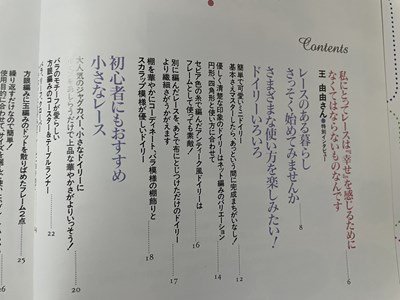 Contents
私にとってレースは、幸せを感じるために
なくてはならないものなんです
王 由由さん
6
レースのある暮らし
さっそく始めてみませんか
8
さまざまな使い方を楽しみたい!
ドイリーいろいろ
簡単で可愛いミニドイリー
基本さえマスターしたら、あっという間に完成まちがいなし!
11
優しく清楚な印象のドイリーはネット編みのバリエーション
円形、四角形と使いみちに合わせて
14
セピア色の糸で編んだアンティーク風ドイリーは
フレームとして使っても素敵!
16
別に編んだレースを、あとで布にとじつけただけのドイリー
より繊細さがうかんできました
17
棚を華やかにコーディネート、バラ模様の棚飾りと
スカラップ模様が優しいドイリー
18
初心者にもおすすめ
小さなレース
大人気のジャグカバー、小さなドイリーに
ビーズをプラスして上品な華やかさがよりいっそう!
20
バラのモチーフが愛らしい
方眼編みのコースター&テーブルランナー
22
方眼編みに玉編みのドットを散りばめたフレーム2点
25
繰り返すだけなので簡単!
26